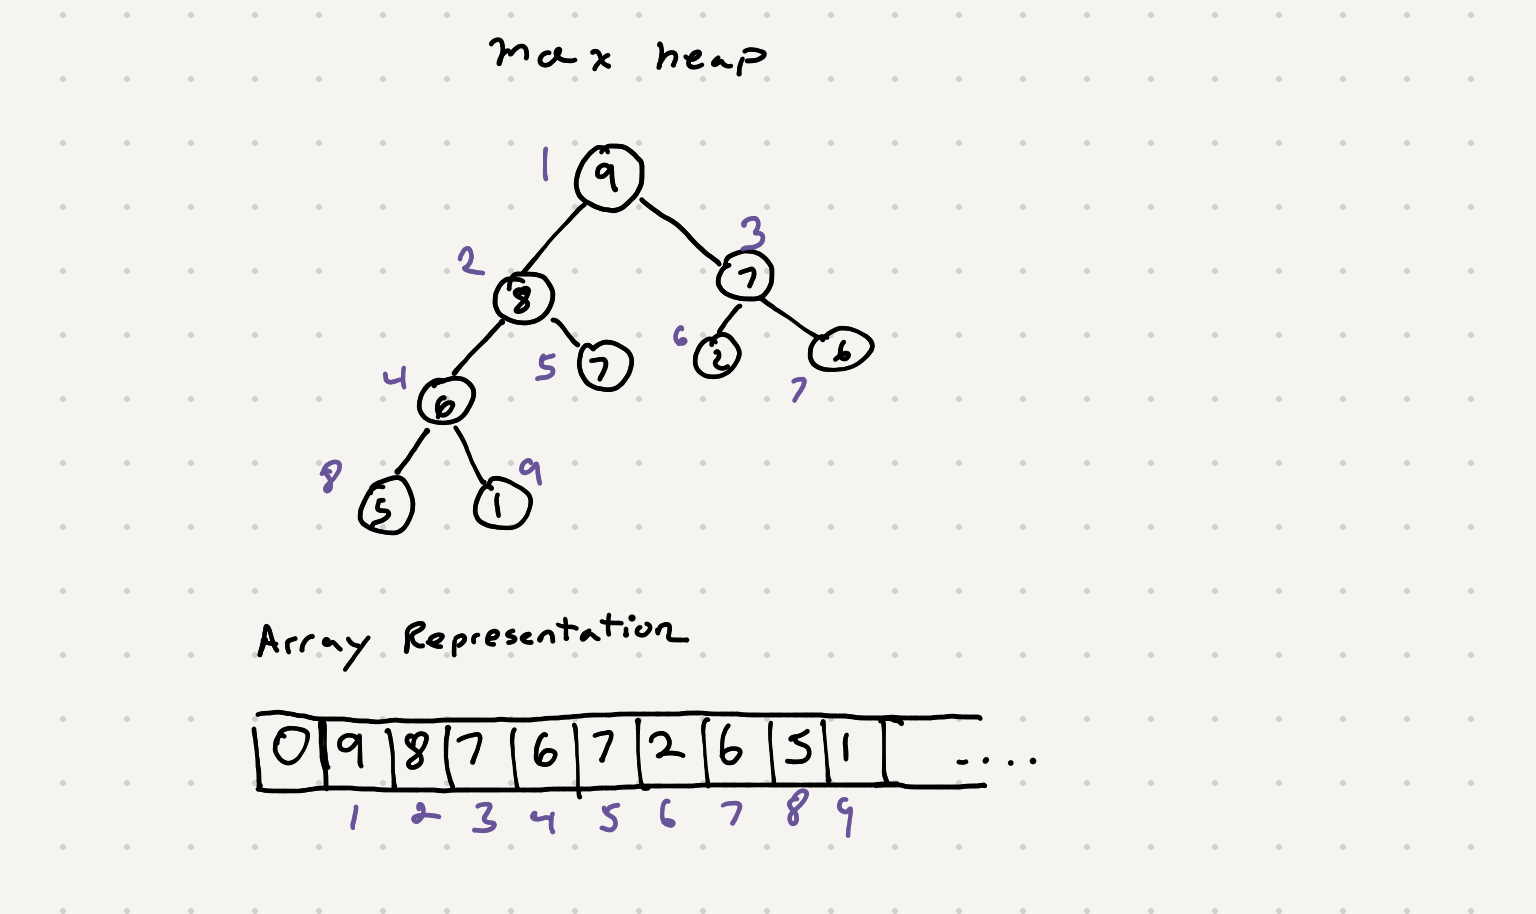 max heap
1 9
3
2 8 7
6 2 6
4 5 7 7
6
8 9
5 1
Array Representation
0 9 8 7 6 7 2 6 5 1 ....
1 2 3 4 5 6 7 8 9